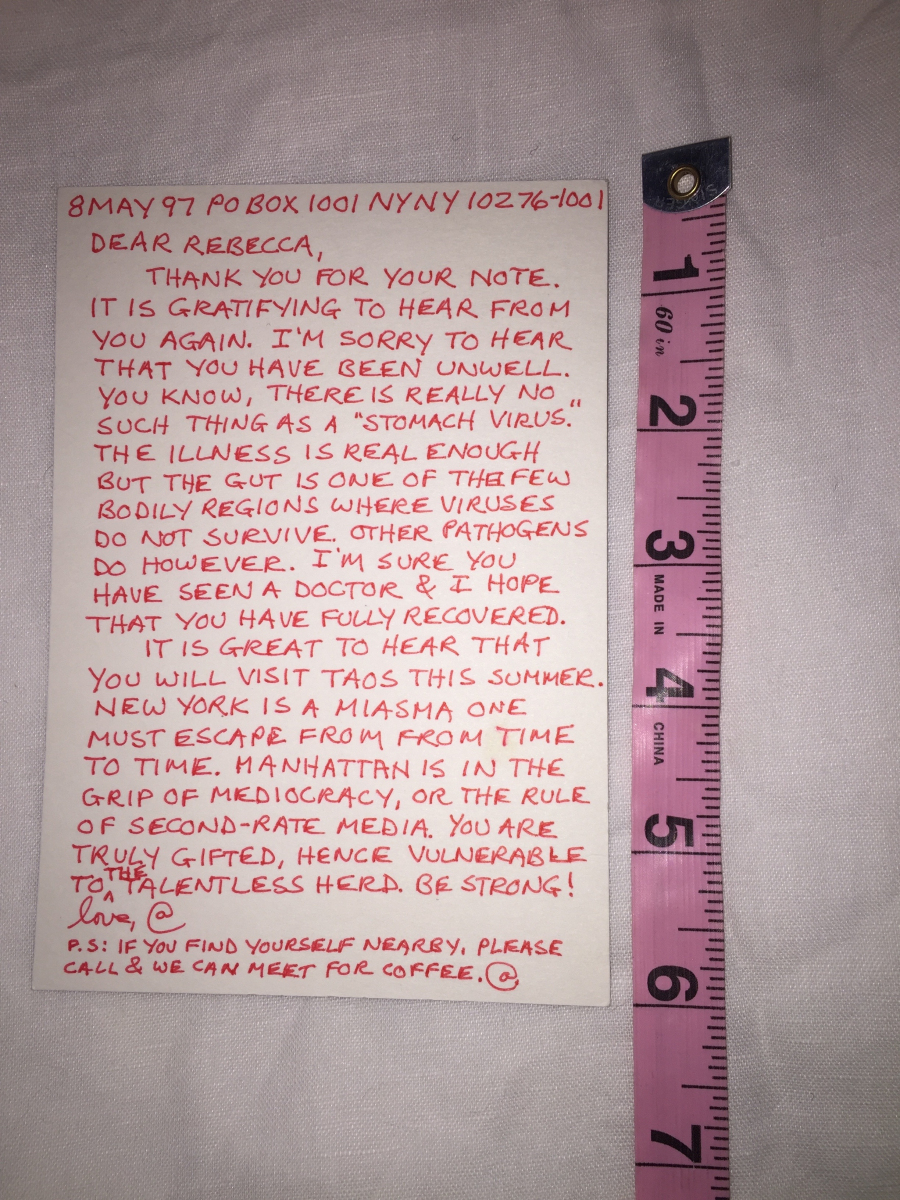 8 MAY 97 PO BOX 1001 NYNY 10276-1001
DEAR REBECCA,
THANK YOU FOR YOUR NOTE.
IT IS GRATIFYING TO HEAR FROM
YOU AGAIN. I'M SORRY TO HEAR
THAT YOU HAVE BEEN UNWELL.
YOU KNOW, THERE IS REALLY NO
SUCH THING AS A "STOMACH VIRUS."
THE ILLNESS IS REAL ENOUGH
BUT THE GUT IS ONE OF THE FEW
BODILY REGIONS WHERE VIRUSES
DO NOT SURVIVE. OTHER PATHOGENS
DO HOWEVER. I'M SURE YOU
HAVE SEEN A DOCTOR & I HOPE
THAT YOU HAVE FULLY RECOVERED.
IT IS GREAT TO HEAR THAT
YOU WILL VISIT TAOS THIS SUMMER.
NEW YORK IS A MIASMA ONE
MUST ESCAPE FROM FROM TIME
TO TIME. MANHATTAN IS IN THE
GRIP OF MEDIOCRACY, OR THE RULE
OF SECOND-RATE MEDIA. YOU ARE
TRULY GIFTED, HENCE VULNERABLE
TO THE TALENTLESS HERD. BE STRONG!
love, @
P.S: IF YOU FIND YOURSELF NEARBY, PLEASE
CALL & WE CAN MEET FOR COFFEE. @
SINGER
1
60 in
2
3
MADE IN
4
CHINA
5
6
7